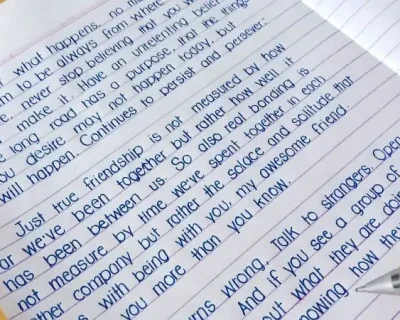 what happens, no mi
rn to be always from where
e. never stop believing that you w
make it. Have an unrelenting belief
e long road has a purpose, that the things
ou desire may not happen today, but
will happen. Continues to persist and persever.
Just true friendship is not measured by how
ar we've been together but rather how well it
has been between us. So also real bonding is
not measure by time we've spent together in each
ther company but rather the solace and solitude that
s with being with you, my awesome friend.
you more than you know.
urns wrong. Talk to strangers. Open
And if you see a group of
out what they are doi
nowing how the